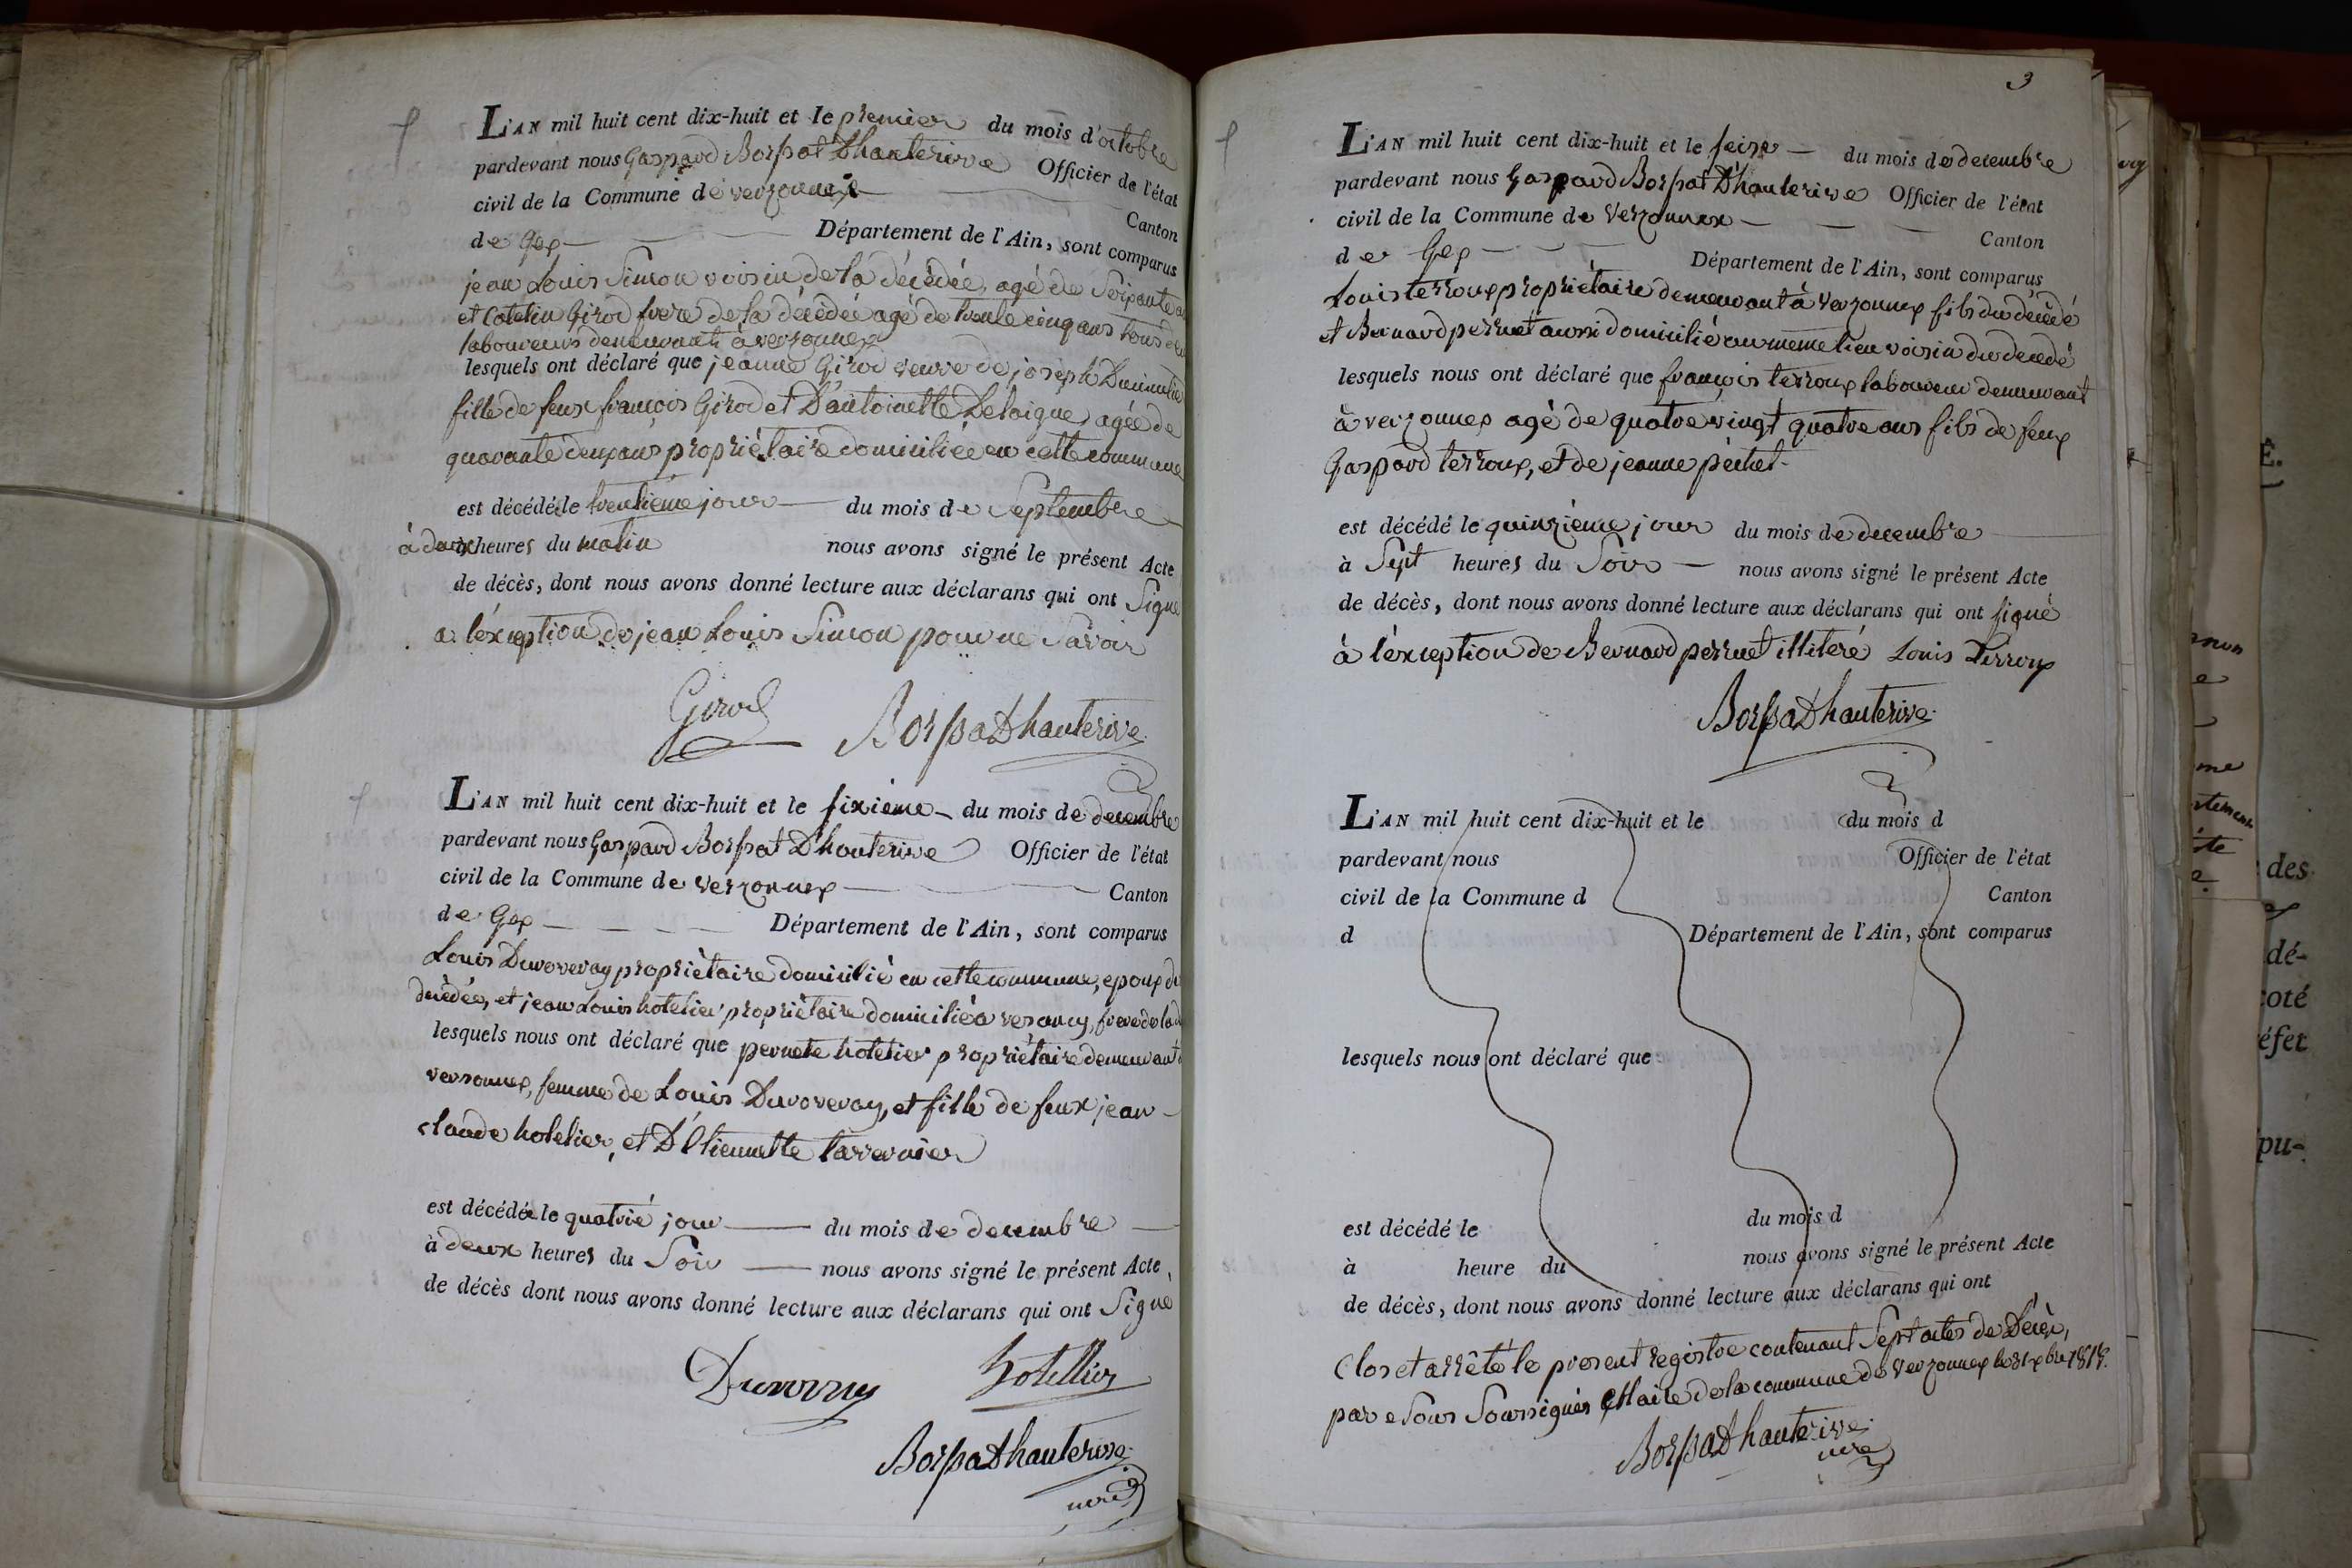 L'AN mil huit cent dix-huit et le premier du mois d'octobre
pardevant nous Gaspard Borssat D'hauterive Officier de l'état
civil de la Commune de verzonnex Canton
de Gex Département de l'Ain, sont comparus
jean Louis Simon voisin de la décédée, agé de Soixante
et Girod frere de la décédée agé de trente cinq ans tous
laboureurs demeurants à verzonnex
lesquels ont déclaré que jeanne Girod veuve de joseph
fille de feux françois Girod et D'antoinette Delaigue, agée de
quarante deux ans propriétaire domiciliée en cette commune
est décédé le trentième jour du mois de Septembre
à heures du matin nous avons signé le présent Acte
de décès, dont nous avons donné lecture aux déclarans qui ont Signé
a l'éxception de jean Louis Simon pour ne Savoir
Girod BorssaDhauterive
L'AN mil huit cent dix-huit et le sixième du mois de decembre
pardevant nous Gaspard Borssat D'hauterive Officier de l'état
civil de la Commune de verzonnex Canton
de Gex Département de l'Ain, sont comparus
Louis Duvoveray propriètaire domicilié en cette commune, epoux de
decédée, et jean Louis hotelier propriètaire domicilié a vesancy, frere de la
lesquels nous ont déclaré que pernete hotelier propriétaire demeurant
versonnex, femme de Louis Duvoveray, et fille de feux jean
claude hotelier, et D'Etiennette tavernier
est décédée le quatrié jour du mois de decembre
à deux heures du Soir nous avons signé le présent Acte
de décès dont nous avons donné lecture aux déclarans qui ont Signé
hotellier
BorssaDhauterive
3
L'AN mil huit cent dix-huit et le seize du mois de decembre
pardevant nous Gaspard Borssat D'hauterive Officier de l'état
civil de la Commune de verzonnex Canton
de Gex Département de l'Ain, sont comparus
Louis terroux propriétaire demeurant à verzonnex fils du decédé
et Bernard perruet aussi domicilié au meme lieu voisin du decedé
lesquels nous ont déclaré que françois terroux laboureur demeurant
à verzonnex agé de quatre vingt quatre ans fils de feux
Gaspard terroux, et de jeanne péchet
est décédé le quinzième jour du mois de decembre
à Sept heures du Soir nous avons signé le présent Acte
de décès, dont nous avons donné lecture aux déclarans qui ont signé
à l'éxception de Bernard perruet illiteré Louis Terroux
BorssaDhauterive
L'AN mil huit cent dix-huit et le du mois d
pardevant nous Officier de l'état
civil de la Commune d Canton
d Département de l'Ain, sont comparus
lesquels nous ont déclaré que
est décédé le du mois d
à heure du nous avons signé le présent Acte
de décès, dont nous avons donné lecture aux déclarans qui ont
Clos et arrêté le present registre contenant Sept actes de Décès,
par Soussignés Maire de la commune de verzonnex le 31 xbre 1818.
BorssaDhauterive
mre